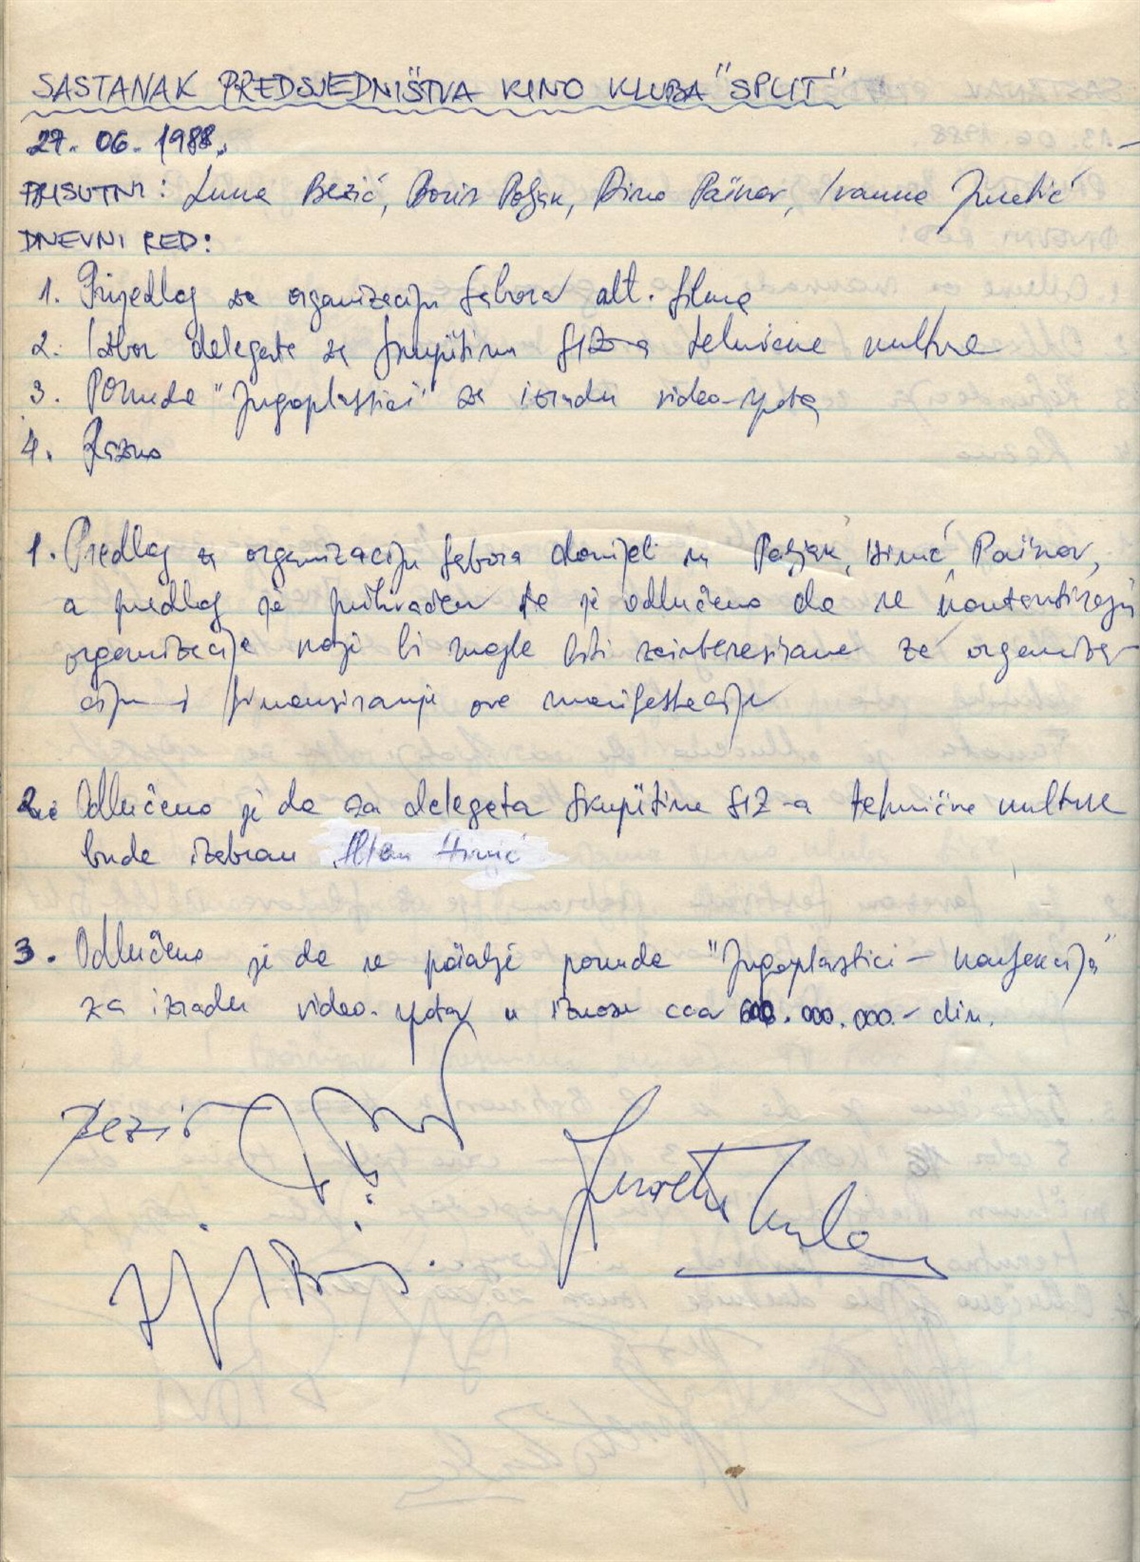 SASTANAK PREDSJEDNIŠTVA KINO KLUBA "SPLIT"
27. 06. 1988.
PRISUTNI: Luna Bezić, Boris Poljak, Dino Pašnar, Ivanna Juretić
DNEVNI RED:
1. Prijedlog za organizaciju Sabora alt. filma
2. Izbor delegata za skupštinu SIZ-a tehničke kulture
3. Ponuda "Jugoplastici" za izradu video-spota
4. Razno
1. Predlog za organizaciju Sabora donijeli su Poljak, Pašnar,
a predlog je prihvaćen te je odlučeno da se kontaktiraju
organizacije koje bi mogle biti zainteresirane za organiza-
ciju i finansiranje ove manifestacije
2. Odlučeno je da za delegata skupštine SIZ-a tehničke kulture
bude izabran
3. Odlučeno je da se pošalje ponuda "Jugoplastici - konfekcija"
za izradu video-spota u iznosu cca 600.000.000.- din.
Bezić